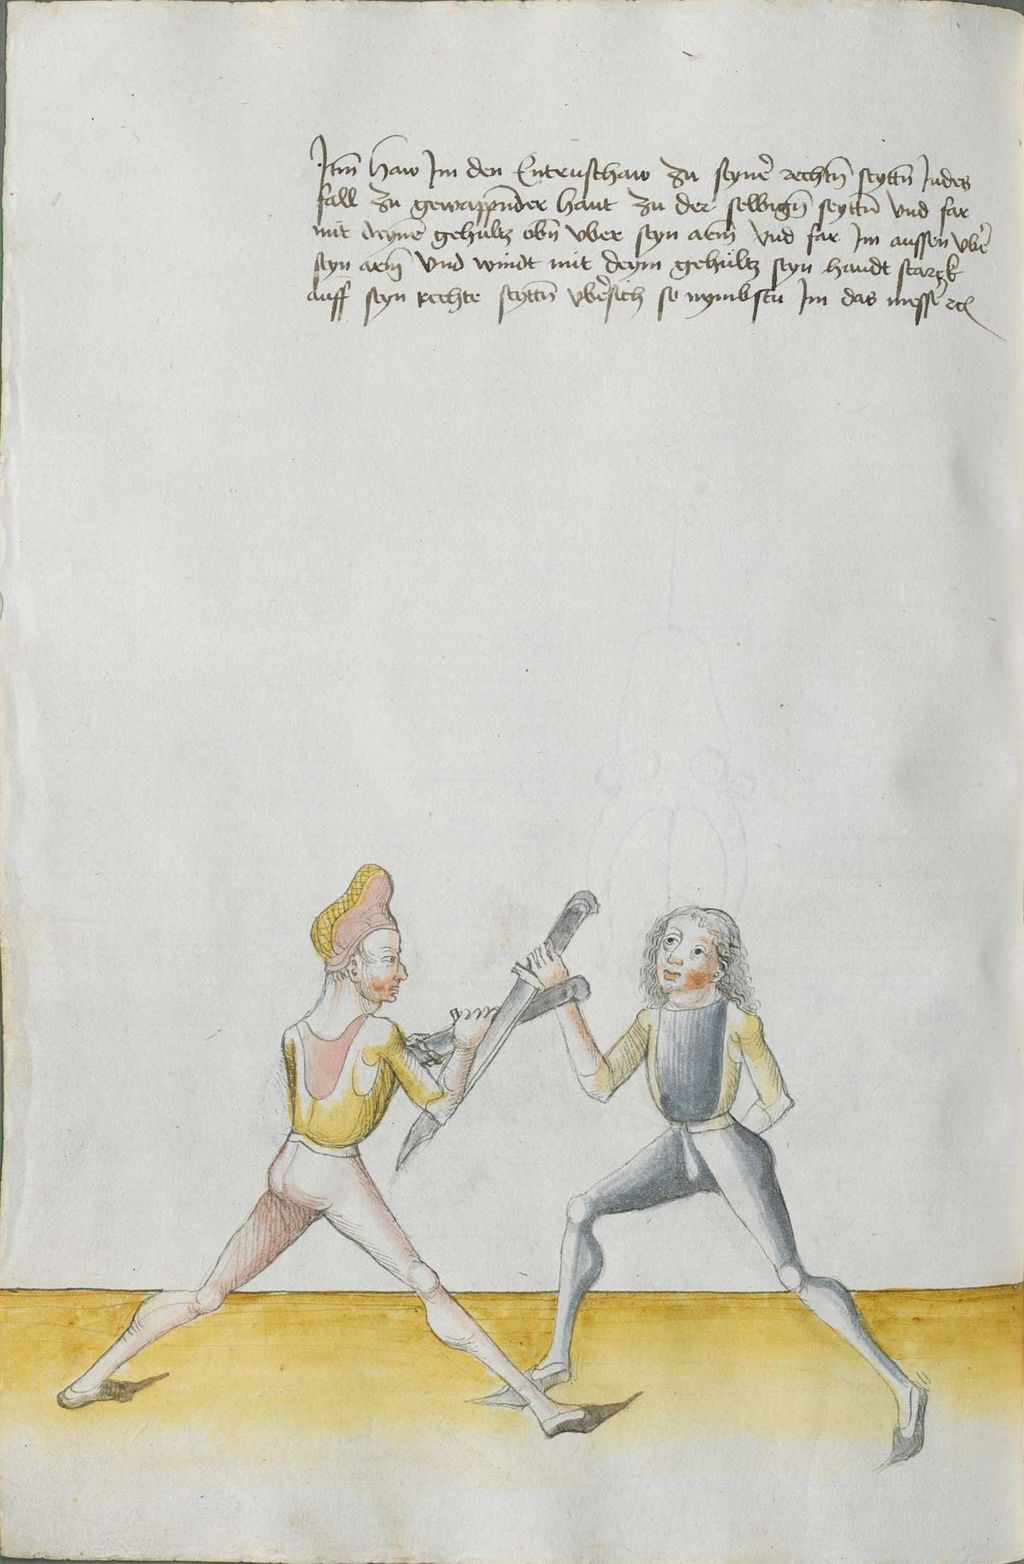 Jtm̄ haw Jm den Entrüsthaw zu seyne͛ rechtn̄ seyttn̄ Jndes
fall zu gewappn̄der hant zu der selbign̄ seyttn̄ vnd far
mit deyne͛ gehültz obn̄ vber seyn arm̄ vnd far Jm aussen vbe͛
seyn arm̄ vnd windt mit deym gehültz seyn handt starck
auff seyn rechte seyttn̄ vbe͛sich so nymbstu Jm das messe͛ ⁊c